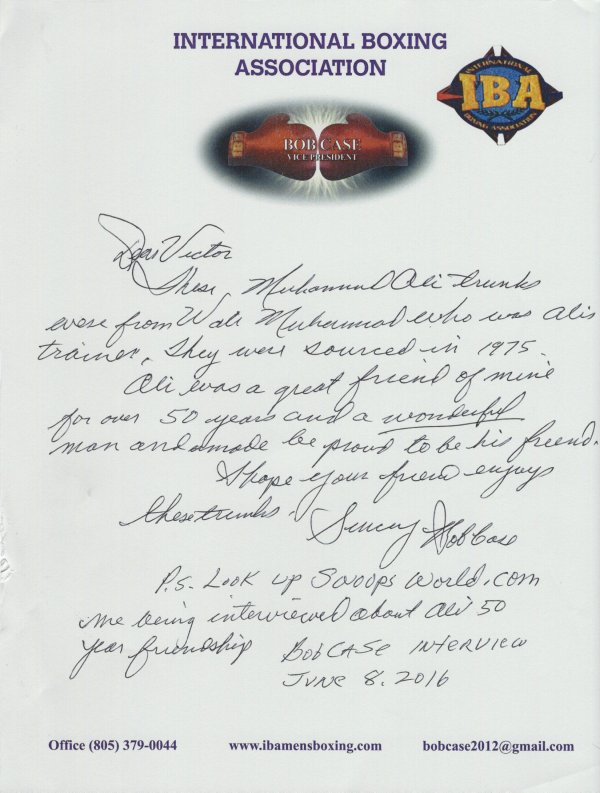 INTERNATIONAL BOXING
ASSOCIATION
INTERNATIONAL
IBA
BOXING ASSOCIATION
BOB CASE
VICE PRESIDENT
Dear Victor
These, Muhammad Ali trunks
were from Wali Muhammad who was Alis
trainer. They were sourced in 1975.
Ali was a great friend of mine
for over 50 years and a wonderful
man and made be proud to be his friend.
I hope your friend enjoys
these trunks.
Bob Case
P.S. Look up Scoops World.com
me being interviewed about Ali 50
year friendship
Bob Case Interview
June 8. 2016
Office (805) 379-0044 www.ibamensboxing.com bobcase2012@gmail.com